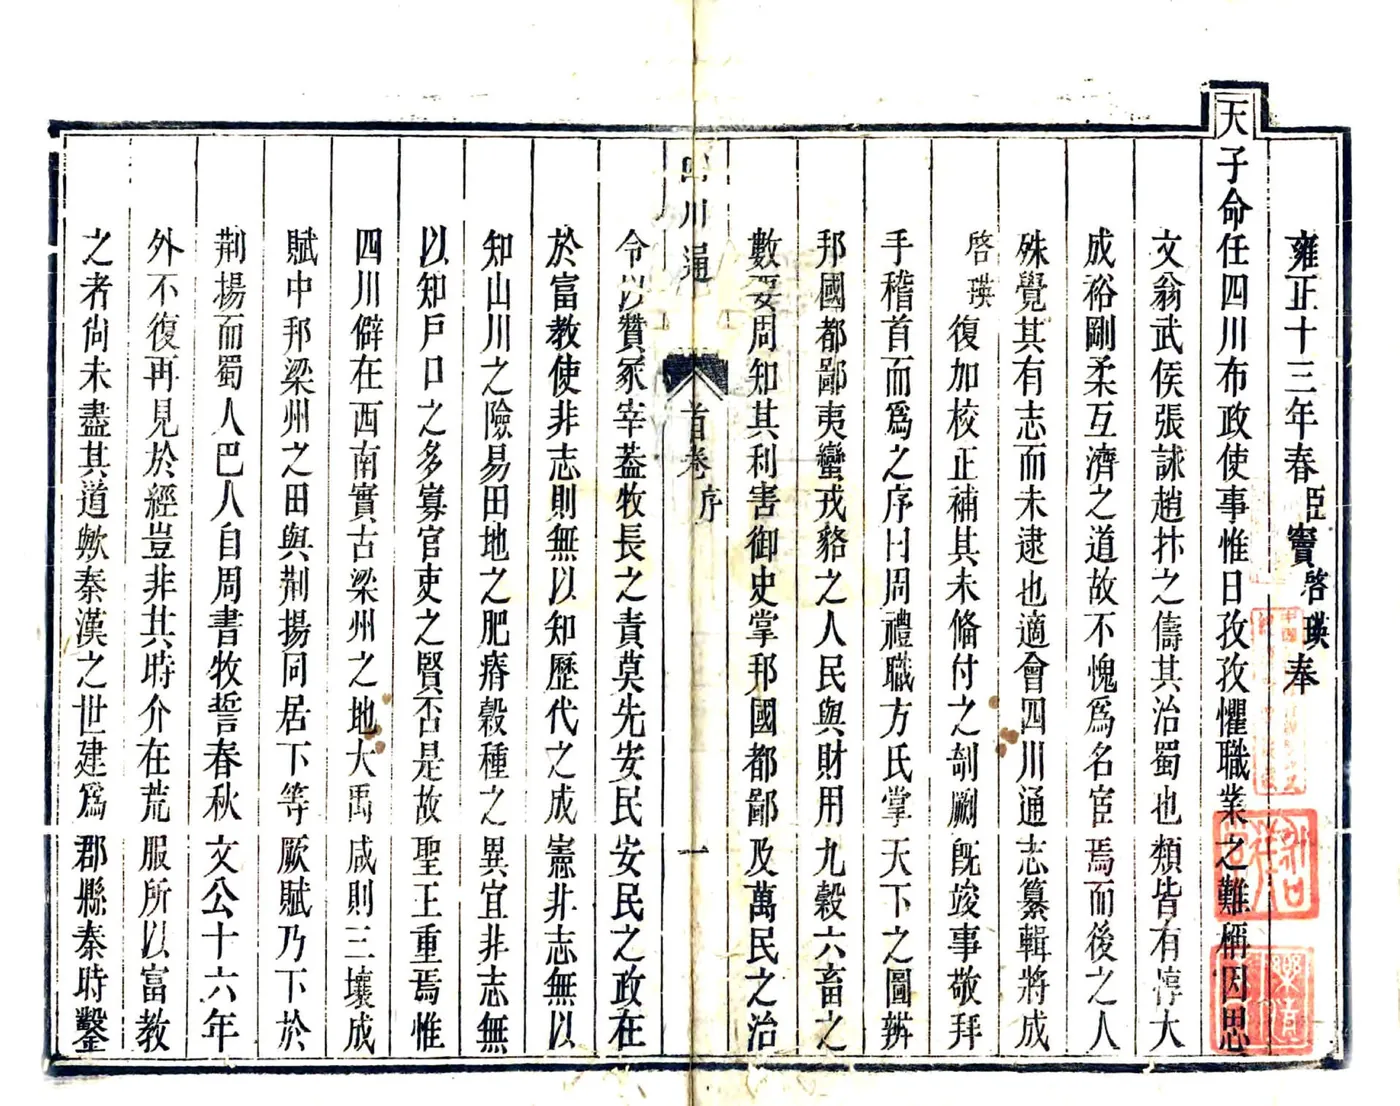 雍正十三年春臣竇啓瑛奉
天子命任四川布政使事惟日孜孜懼職業之難稱因思
文翁武侯張詠趙抃之儔其治蜀也類皆有惇大
成裕剛柔互濟之道故不愧爲名宦焉而後之人
殊覺其有志而未逮也適會四川通志纂輯將成
啓瑛復加校正補其未備付之剞劂旣竣事敬拜
手稽首而爲之序曰周禮職方氏掌天下之圖辨
邦國都鄙夷蠻戎貉之人民與財用九穀六畜之
數要周知其利害御史掌邦國都鄙及萬民之治
四川通
首卷
序
一
令以贊冢宰葢牧長之責莫先安民安民之政在
於富教使非志則無以知歷代之成憲非志無以
知山川之險易田地之肥瘠穀種之異宜非志無
以知戶口之多寡官吏之賢否是故聖王重焉惟
四川僻在西南實古梁州之地大禹咸則三壤成
賦中邦梁州之田與荆揚同居下等厥賦乃下於
荆揚而蜀人巴人自周書牧誓春秋文公十六年
外不復再見於經豈非其時介在荒服所以富教
之者尙未盡其道歟秦漢之世建爲郡縣秦時鑿